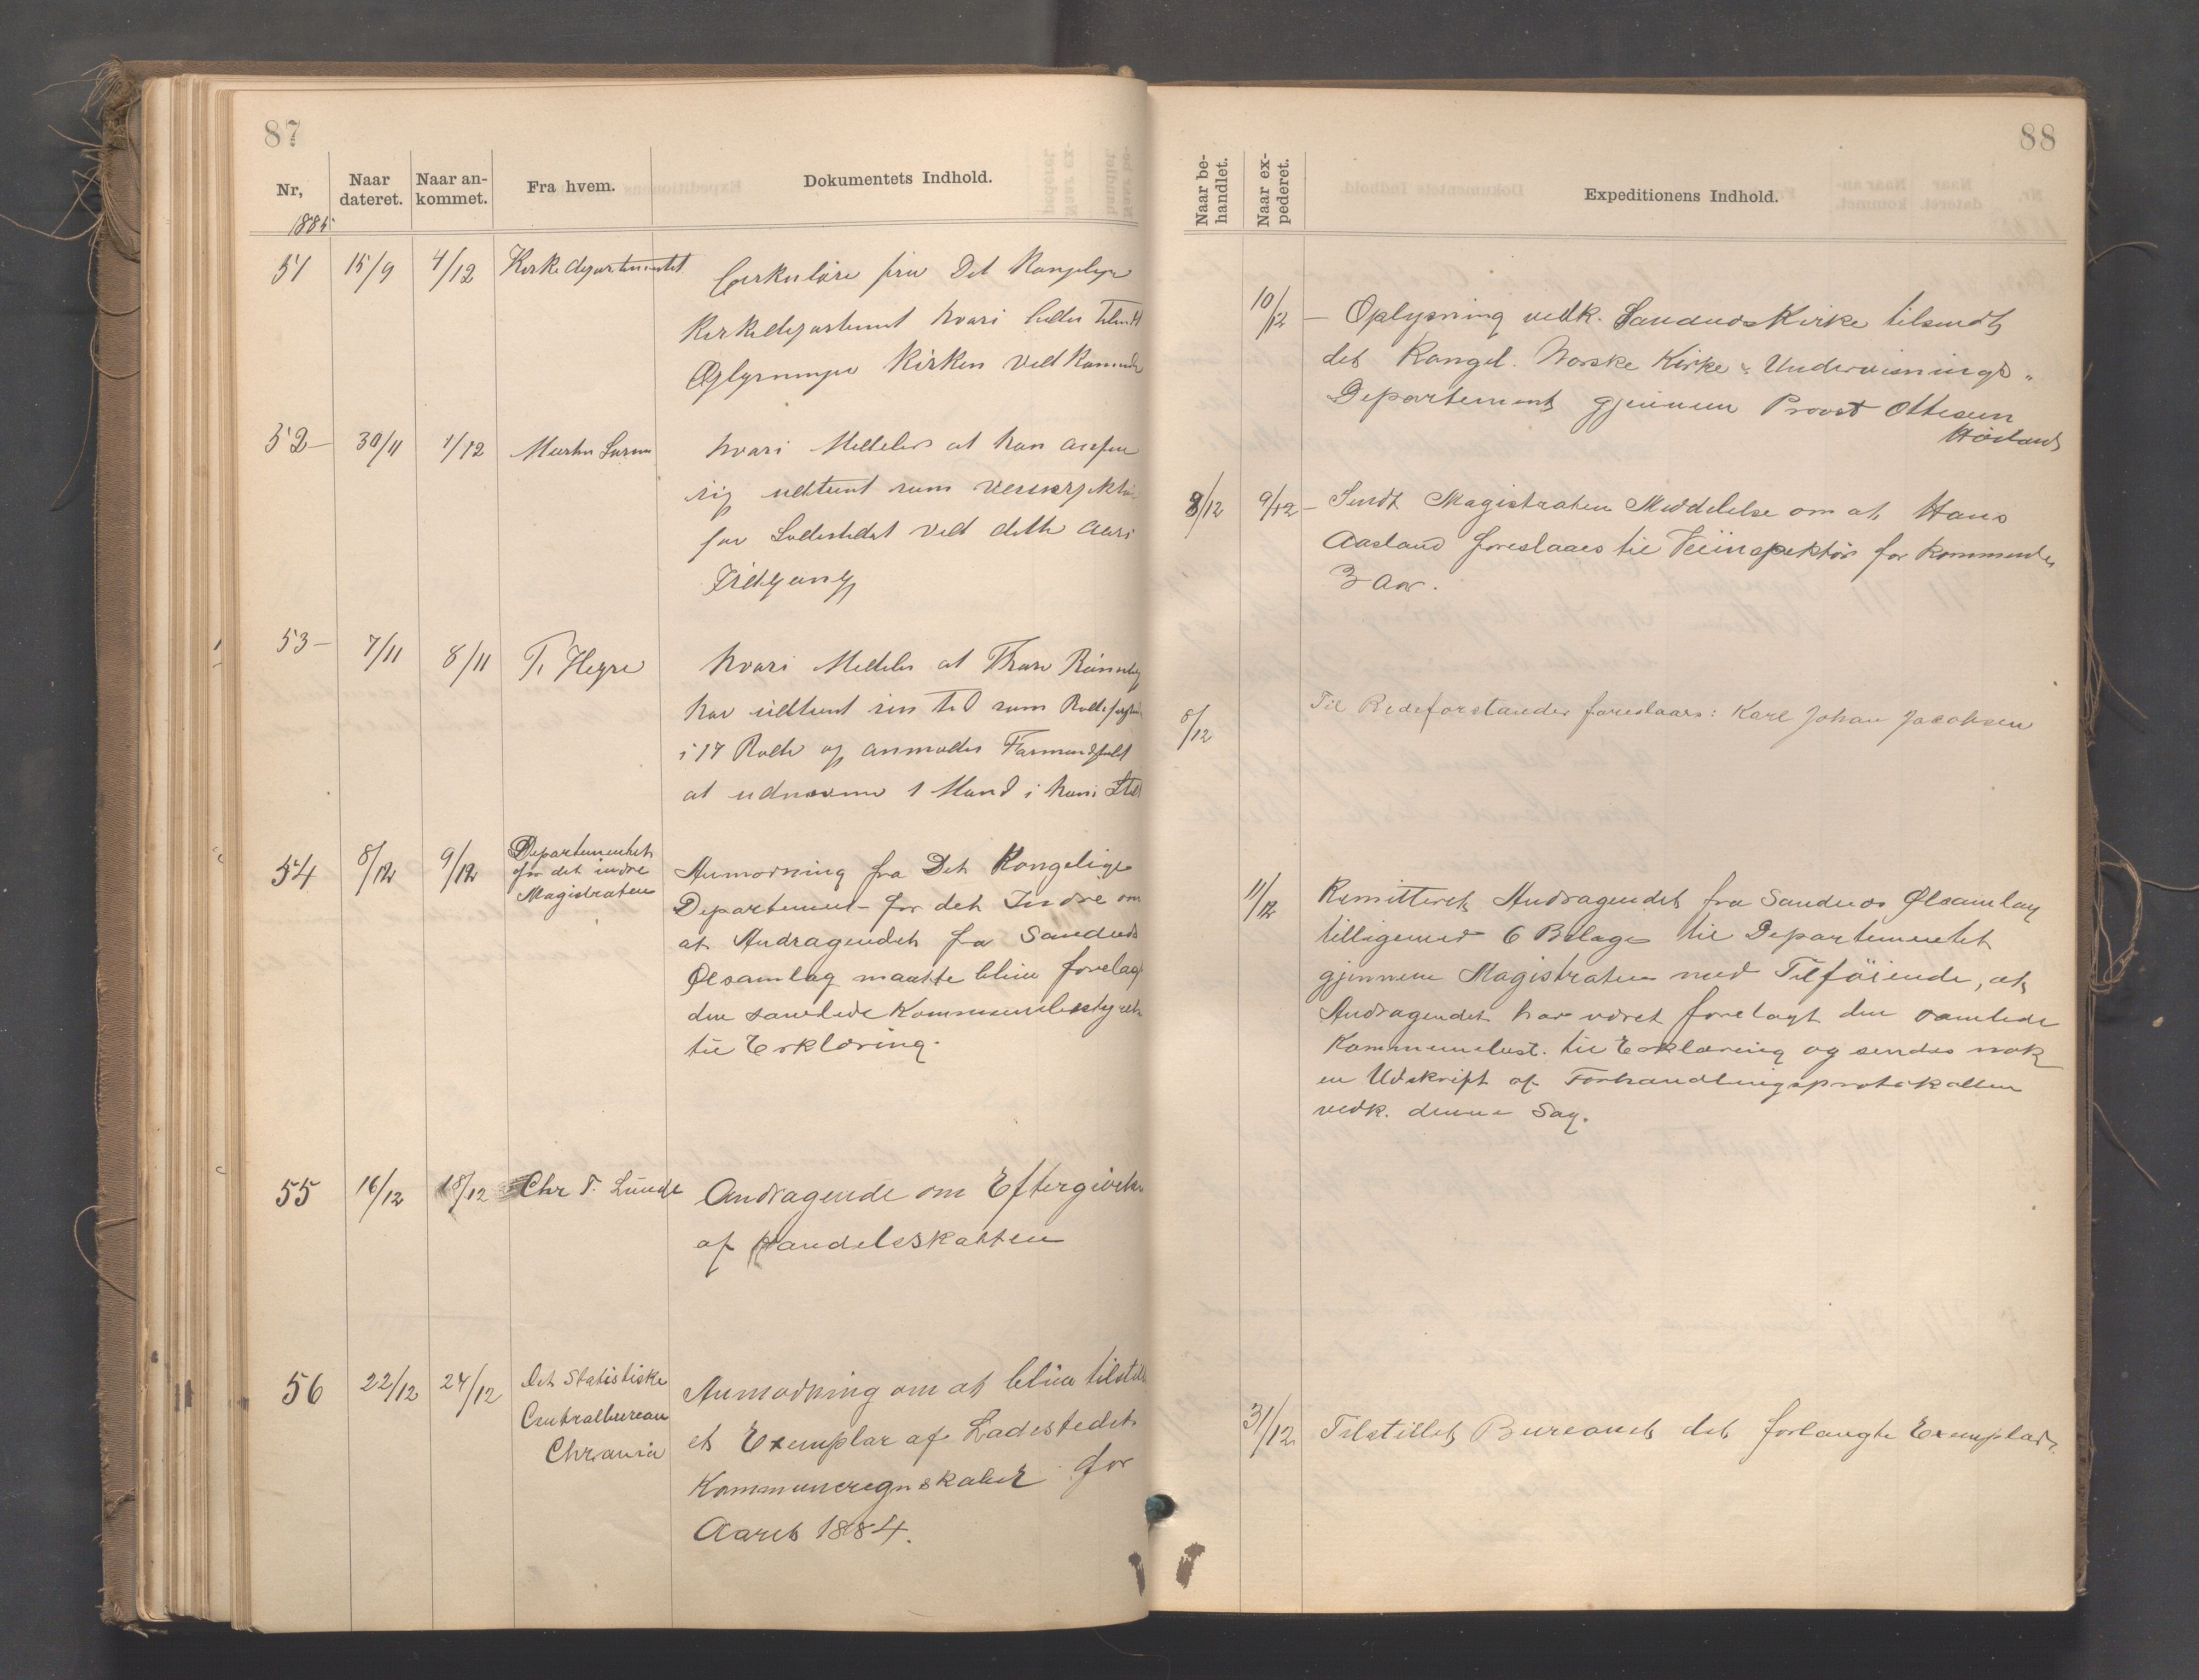 87
Nr,
Naar dateret.
Naar an-
kommet.
Fra hvem.
Dokumentets Indhold.
1885
51 15/9 4/12 Kirkedepartementet
Cirkulære fra Det Kongelige
Kirkedepartement hvori bedes tilsendt
Oplysninger Kirken vedkommende
52 – 30/11 1/12
hvori Meddeles at han
sig udtjent som
for Ladestedet ved dette Aars
Udgang
53 – 7/11 8/11 T. Heyre
hvori Meddeles at
har udtjent sin Tid som Rodeforstander
i 17 Rode og anmoder Formandskabet
at udnævne 1 Mand i hans Sted
54 8/12 9/12 Departementet
for det indre
Magistraten
Anmodning fra Det Kongelige
Departement for det Indre om
at Andragendet fra Sandnes
Ølsamlag maatte blive forelagt
den samlede Kommunebestyrelse
til Erklæring.
55 16/12 18/12 Chr T. Lunde
Andragende om Eftergivelse
af Handelsskatten
56 22/12 24/12 Det Statistiske
Centralbureau
Chrania
Anmodning om at blive tilstillet
et Exemplar af Ladestedets
Kommuneregnskaber for
Aaret 1884.
88
Naar be-
handlet.
Naar ex-
pederet.
Expeditionens Indhold.
10/12 – Oplysning vedk. Sandnes Kirke tilsendt
det Kongel. Norske Kirke & Undervisnings-
Departement gjennem Provst Ottesen
Høiland
8/12 9/12 – Sendt Magistraten Meddelelse om at Hans
Aasland foreslaaes til Veiinspektør for kommende
3 Aar.
8/12 Til Rodeforstander foreslaaes: Karl Johan Jacobsen
11/12 Remitteret Andragendet fra Sandnes Ølsamlag
tilligemed 6 Bilage til Departementet
gjennem Magistraten med Tilføiende, at
Andragendet har været forelagt den samlede
Kommunebest. til Erklæring og sendes nok
en Udskrift af Forhandlingsprotokollen
vedk. denne Sag.
31/12 Tilstillet Bureauet det forlangte Exemplar.